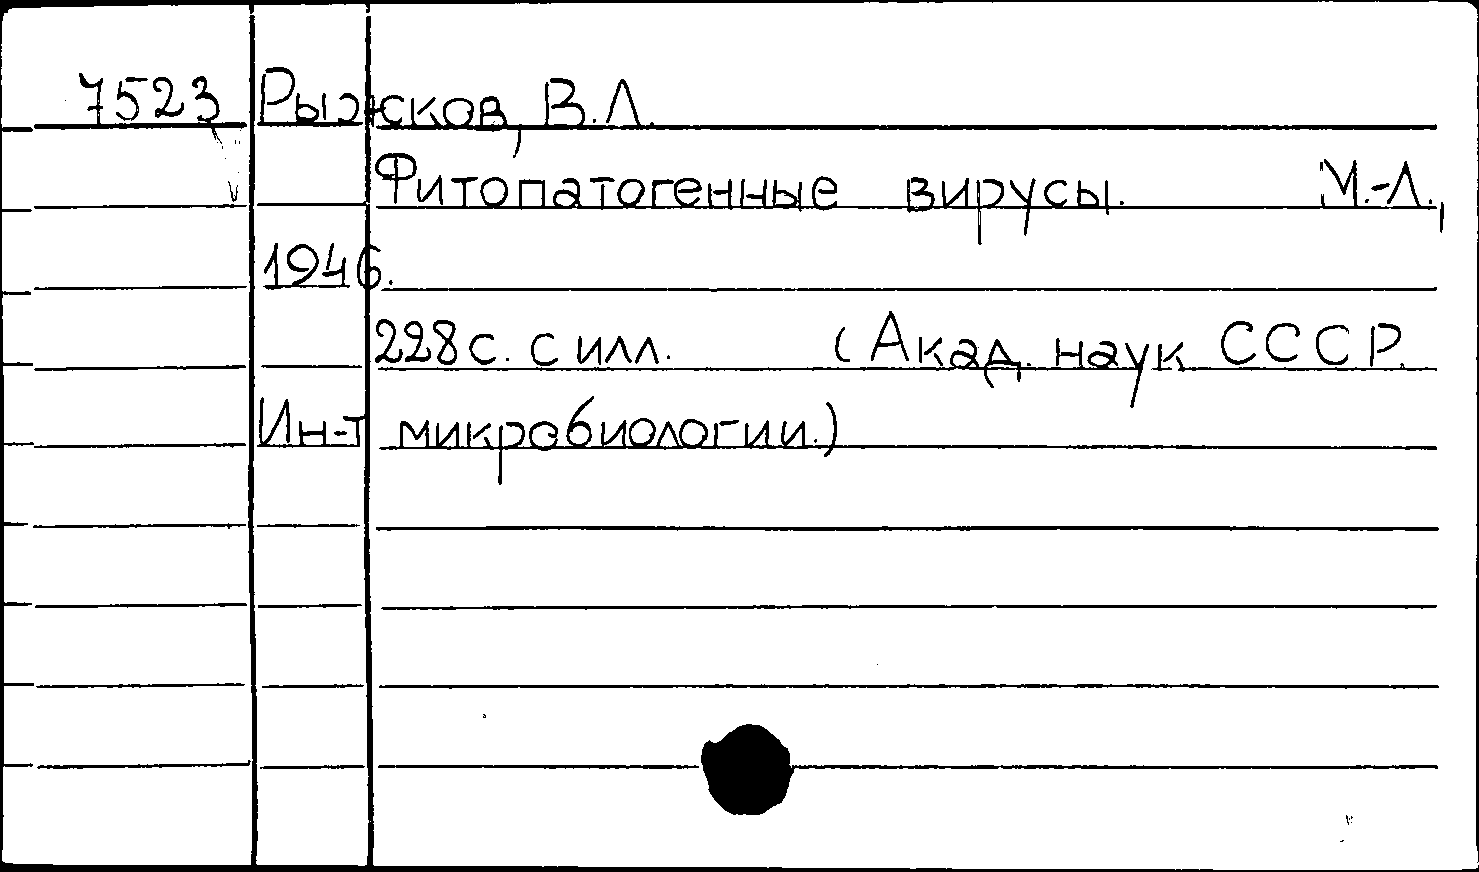 7523 Рыжков, В.Л.
Фитопатогенные вирусы. М.-Л.,
1946.
228 с. с илл. (Акад. наук СССР.
Ин-т микробиологии.)